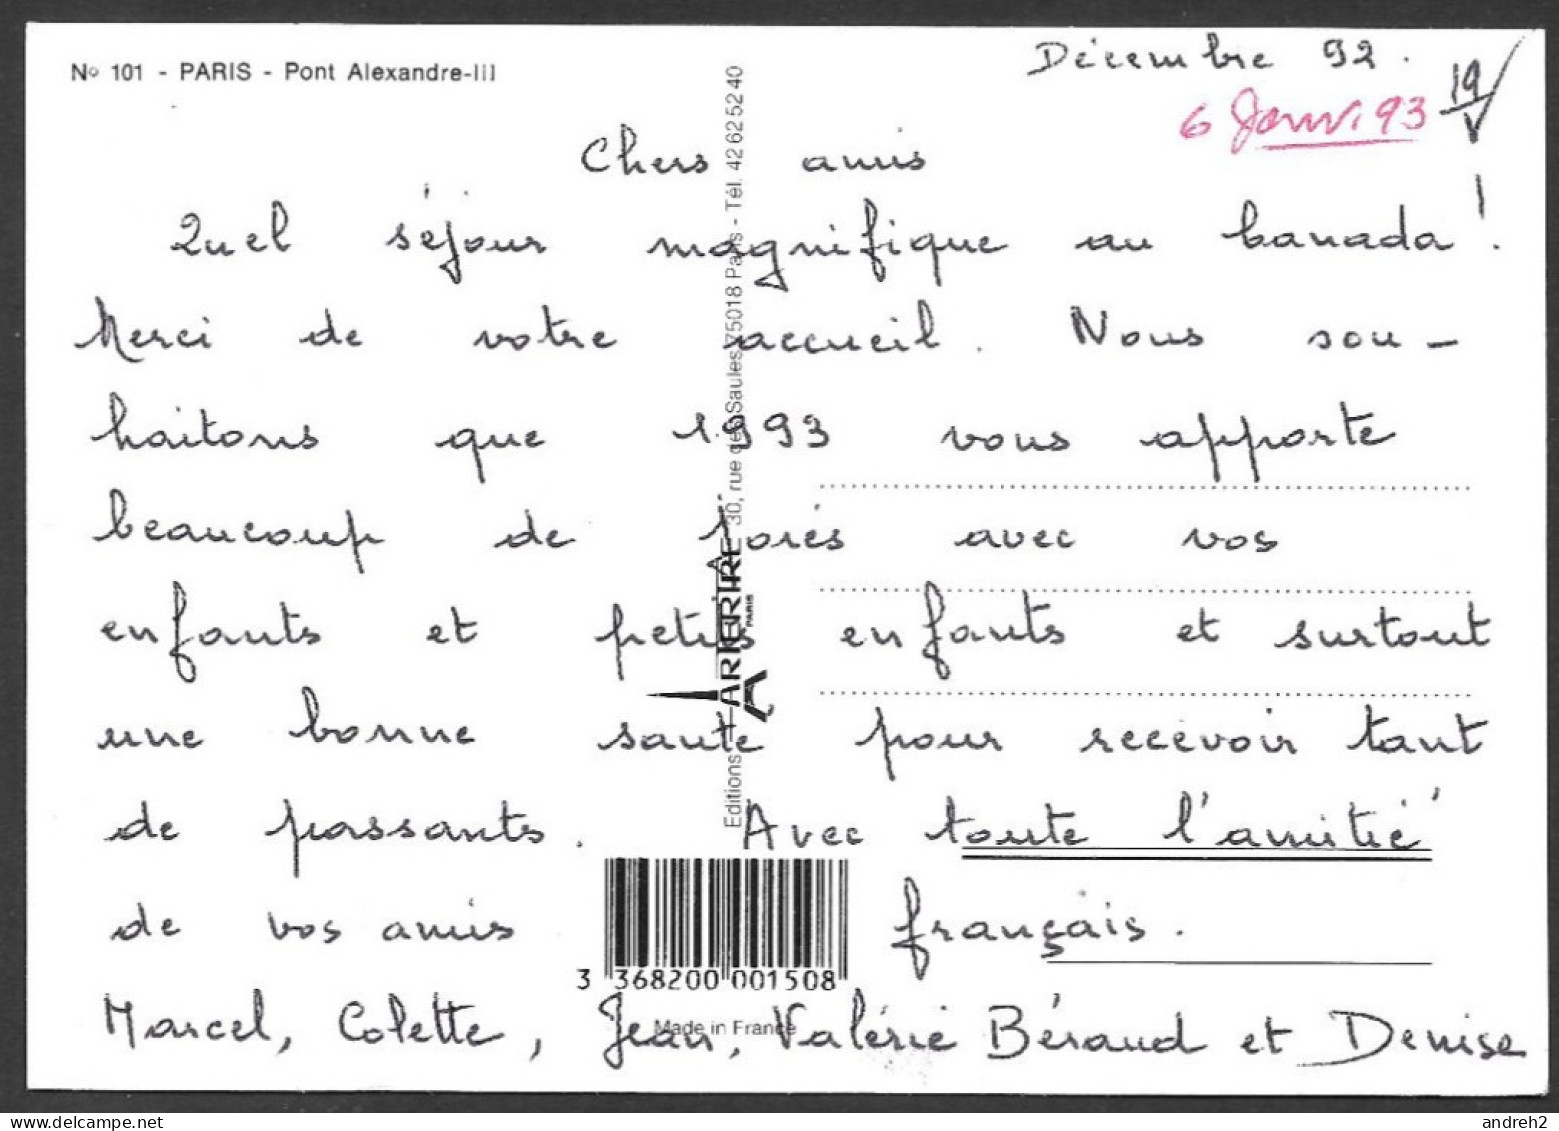 Nº 101 - PARIS - Pont Alexandre-III
Décembre 92.
6 Janv. 93
19/V
Chers amis
Quel séjour magnifique au Canada !
Merci de votre accueil. Nous sou-
haitons que 1993 vous apporte
beaucoup de joies avec vos
enfants et petits enfants et surtout
une bonne santé pour recevoir tant
de passants. Avec toute l'amitié
de vos amis français.
Marcel, Colette, Jean, Valérie Béraud et Denise
Editions ARTERTRE PARIS 30, rue des Saules 75018 Paris - Tél. 42 62 52 40
3 368200 001508
Made in France
andreh2